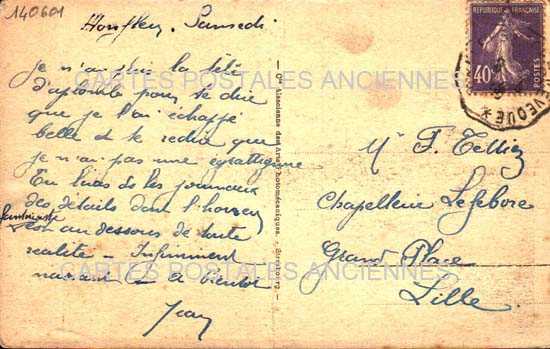 140601
Honfleur. Samedi
je n'ai plus la tête
d'aplomb pour te dire
que je l'ai échappé
belle et te redire que
je n'ai pas une égratignure
Tu liras ds les journaux
des détails dont l'horreur
fantaisiste
est au dessous de toute
réalité - Infiniment
navrant - à bientôt
Jean
CARTES POSTALES ANCIENNES
CARTES POSTALES ANCIENNES
Cie Alsacienne des Arts Photomécaniques. - Strasbourg.
REPUBLIQUE FRANÇAISE
40
POSTES
EVEQUE
Mr F. Tellier
Chapellerie Lefebvre
Grand Place
Lille.